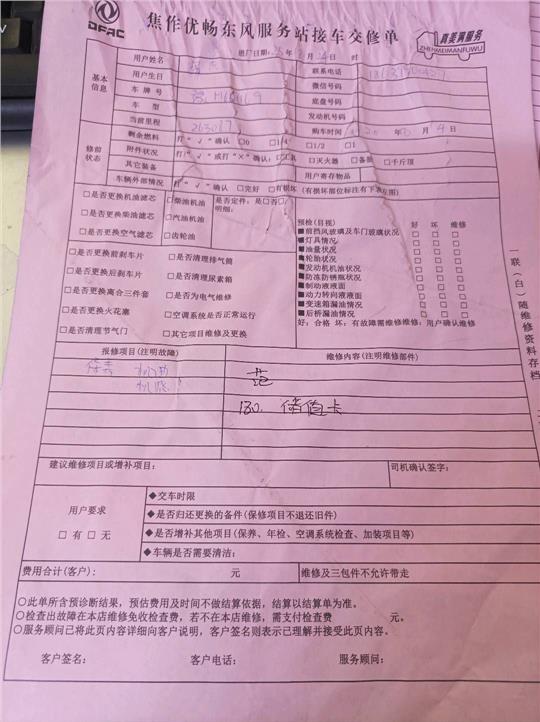 DFAC
焦作优畅东风服务站接车交修单
真美满服务
ZHENMEIMANFUWU
进厂日期: 年 月24日 时
基本信息
用户姓名
联系电话
用户生日
微信号码
车牌号
底盘号码
车型
发动机号码
当前里程 263017
购车时间 年 月4日
修前状态
剩余燃料 打“√”确认 □0 □1/4 □1/2 □1
附件状况 打“√”或打“×”确认: □工具 □灭火器 □备胎 □千斤顶
其它装备
用户寄存物品
车辆外部情况 打“√”确认 □完好 □有损坏(有损坏部位标注有下放左图)
□是否更换机油滤芯 □柴油机油 是否定件: □是□否
明细:
□是否更换柴油滤芯 □汽油机油
□是否更换空气滤芯 □齿轮油
□是否更换前刹车片 □是否清理排气筒
□是否更换后刹车片 □是否清理尿素箱
□是否更换离合三件套 □是否为电气维修
□是否更换火花塞 □空调系统是否正常运行
□是否清理节气门 □其它项目维修及更换
预检(目视) 好 坏 维修
■前挡风玻璃及车门玻璃状况 □ □ □
■灯具情况 □ □ □
■油量状况 □ □ □
■轮胎状况 □ □ □
■发动机机油状况 □ □ □
■防冻防锈瓶状况 □ □ □
■制动液液面 □ □ □
■动力转向液液面 □ □ □
■变速箱漏油情况 □ □ □
■后桥漏油情况 □ □ □
好: 合格 坏: 有故障需维修维修: 用户确认维修
一联(白)随维修资料存档
报修项目(注明故障)
维修内容(注明维修部件)
保养 机油
机滤
130. 储值卡
建议维修项目或增补项目:
司机确认签字:
用户要求
□有 □无
◆交车时限
◆是否归还更换的备件(保修项目不退还旧件)
◆是否增补其他项目(保养、年检、空调系统检查、加装项目等)
◆车辆是否需要清洁:
费用合计(客户): 元
维修及三包件不允许带走
○此单所含预诊断结果，预估费用及时间不做结算依据，结算以结算单为准。
○检查出故障在本店维修免收检查费，若不在本店维修，需支付检查费 元。
○服务顾问已将此页内容详细向客户说明，客户签名则表示已理解并接受此页内容。
客户签名: 客户电话: 服务顾问: